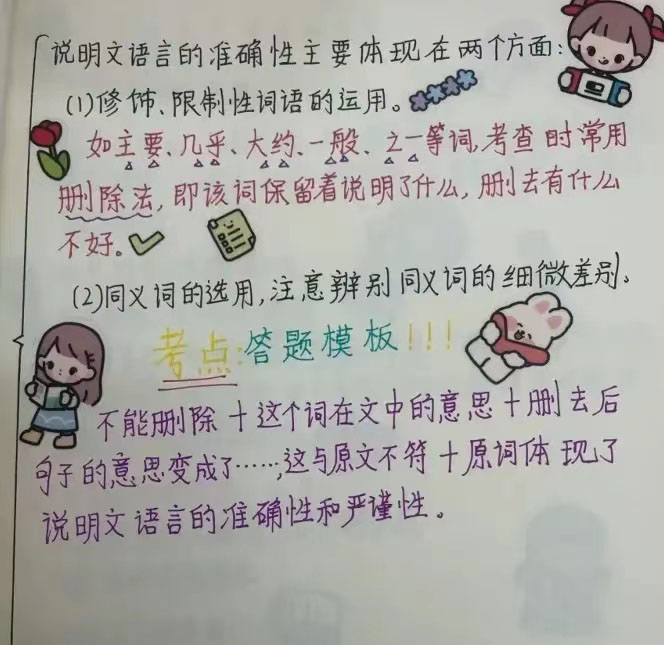 说明文语言的准确性主要体现在两个方面:
(1)修饰、限制性词语的运用。
如主要、几乎、大约、一般、之一等词,考查时常用
删除法,即该词保留着说明了什么,删去有什么
不好。
(2)同义词的选用,注意辨别同义词的细微差别。
考点:答题模板!!!
不能删除+这个词在文中的意思+删去后
句子的意思变成了……,这与原文不符+原词体现了
说明文语言的准确性和严谨性。